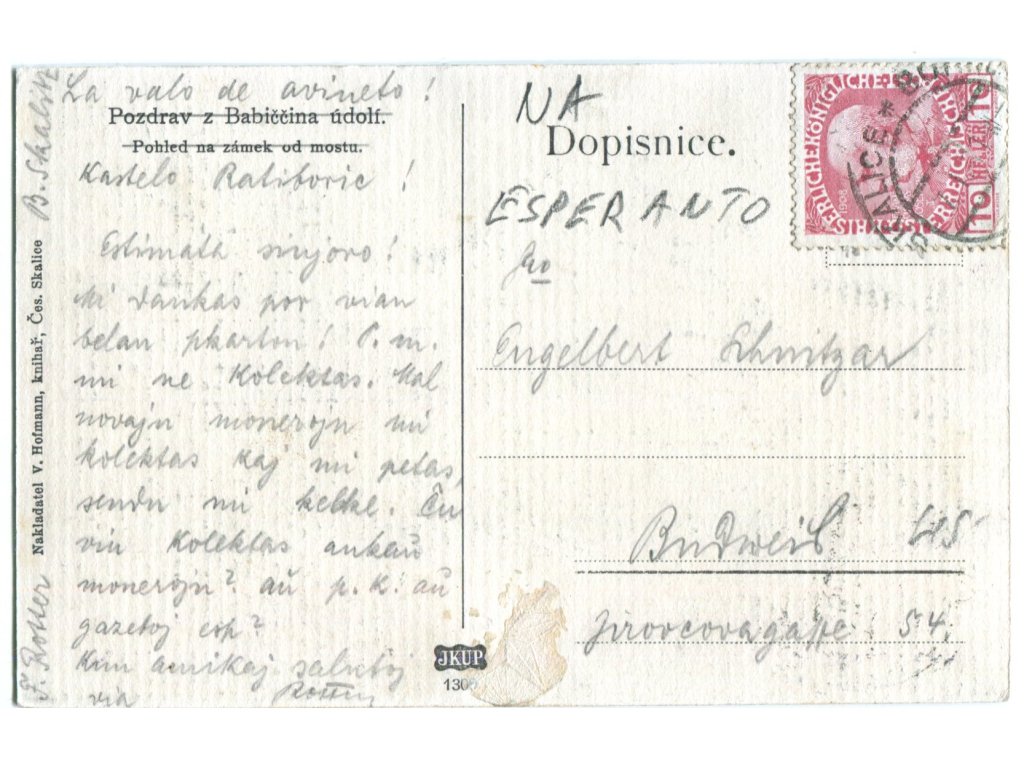 La valo de avineto!
Pozdrav z Babiččina údolí.
Pohled na zámek od mostu.
Kastelo Ratiboric!
Estimata sinjoro!
Mi dankas por vian
belan pkarton! P. m.
mi ne kolektas. Mal
novajn monerojn mi
kolektas kaj mi petas,
sendu mi kelke. Ĉu
vin kolektas ankaŭ
monerojn? aŭ p. k. aŭ
gazetoj esp?
Kun amikaj salutoj
via
F. Rotter
B. Skalitz
Nakladatel V. Hofmann, knihař, Čes. Skalice
JKUP
130
NA
Dopisnice.
ESPERANTO
Engelbert Schnitzar
Budweis
Jirovcovagasse 54.
SKALICE
10 HELLER 10
1908